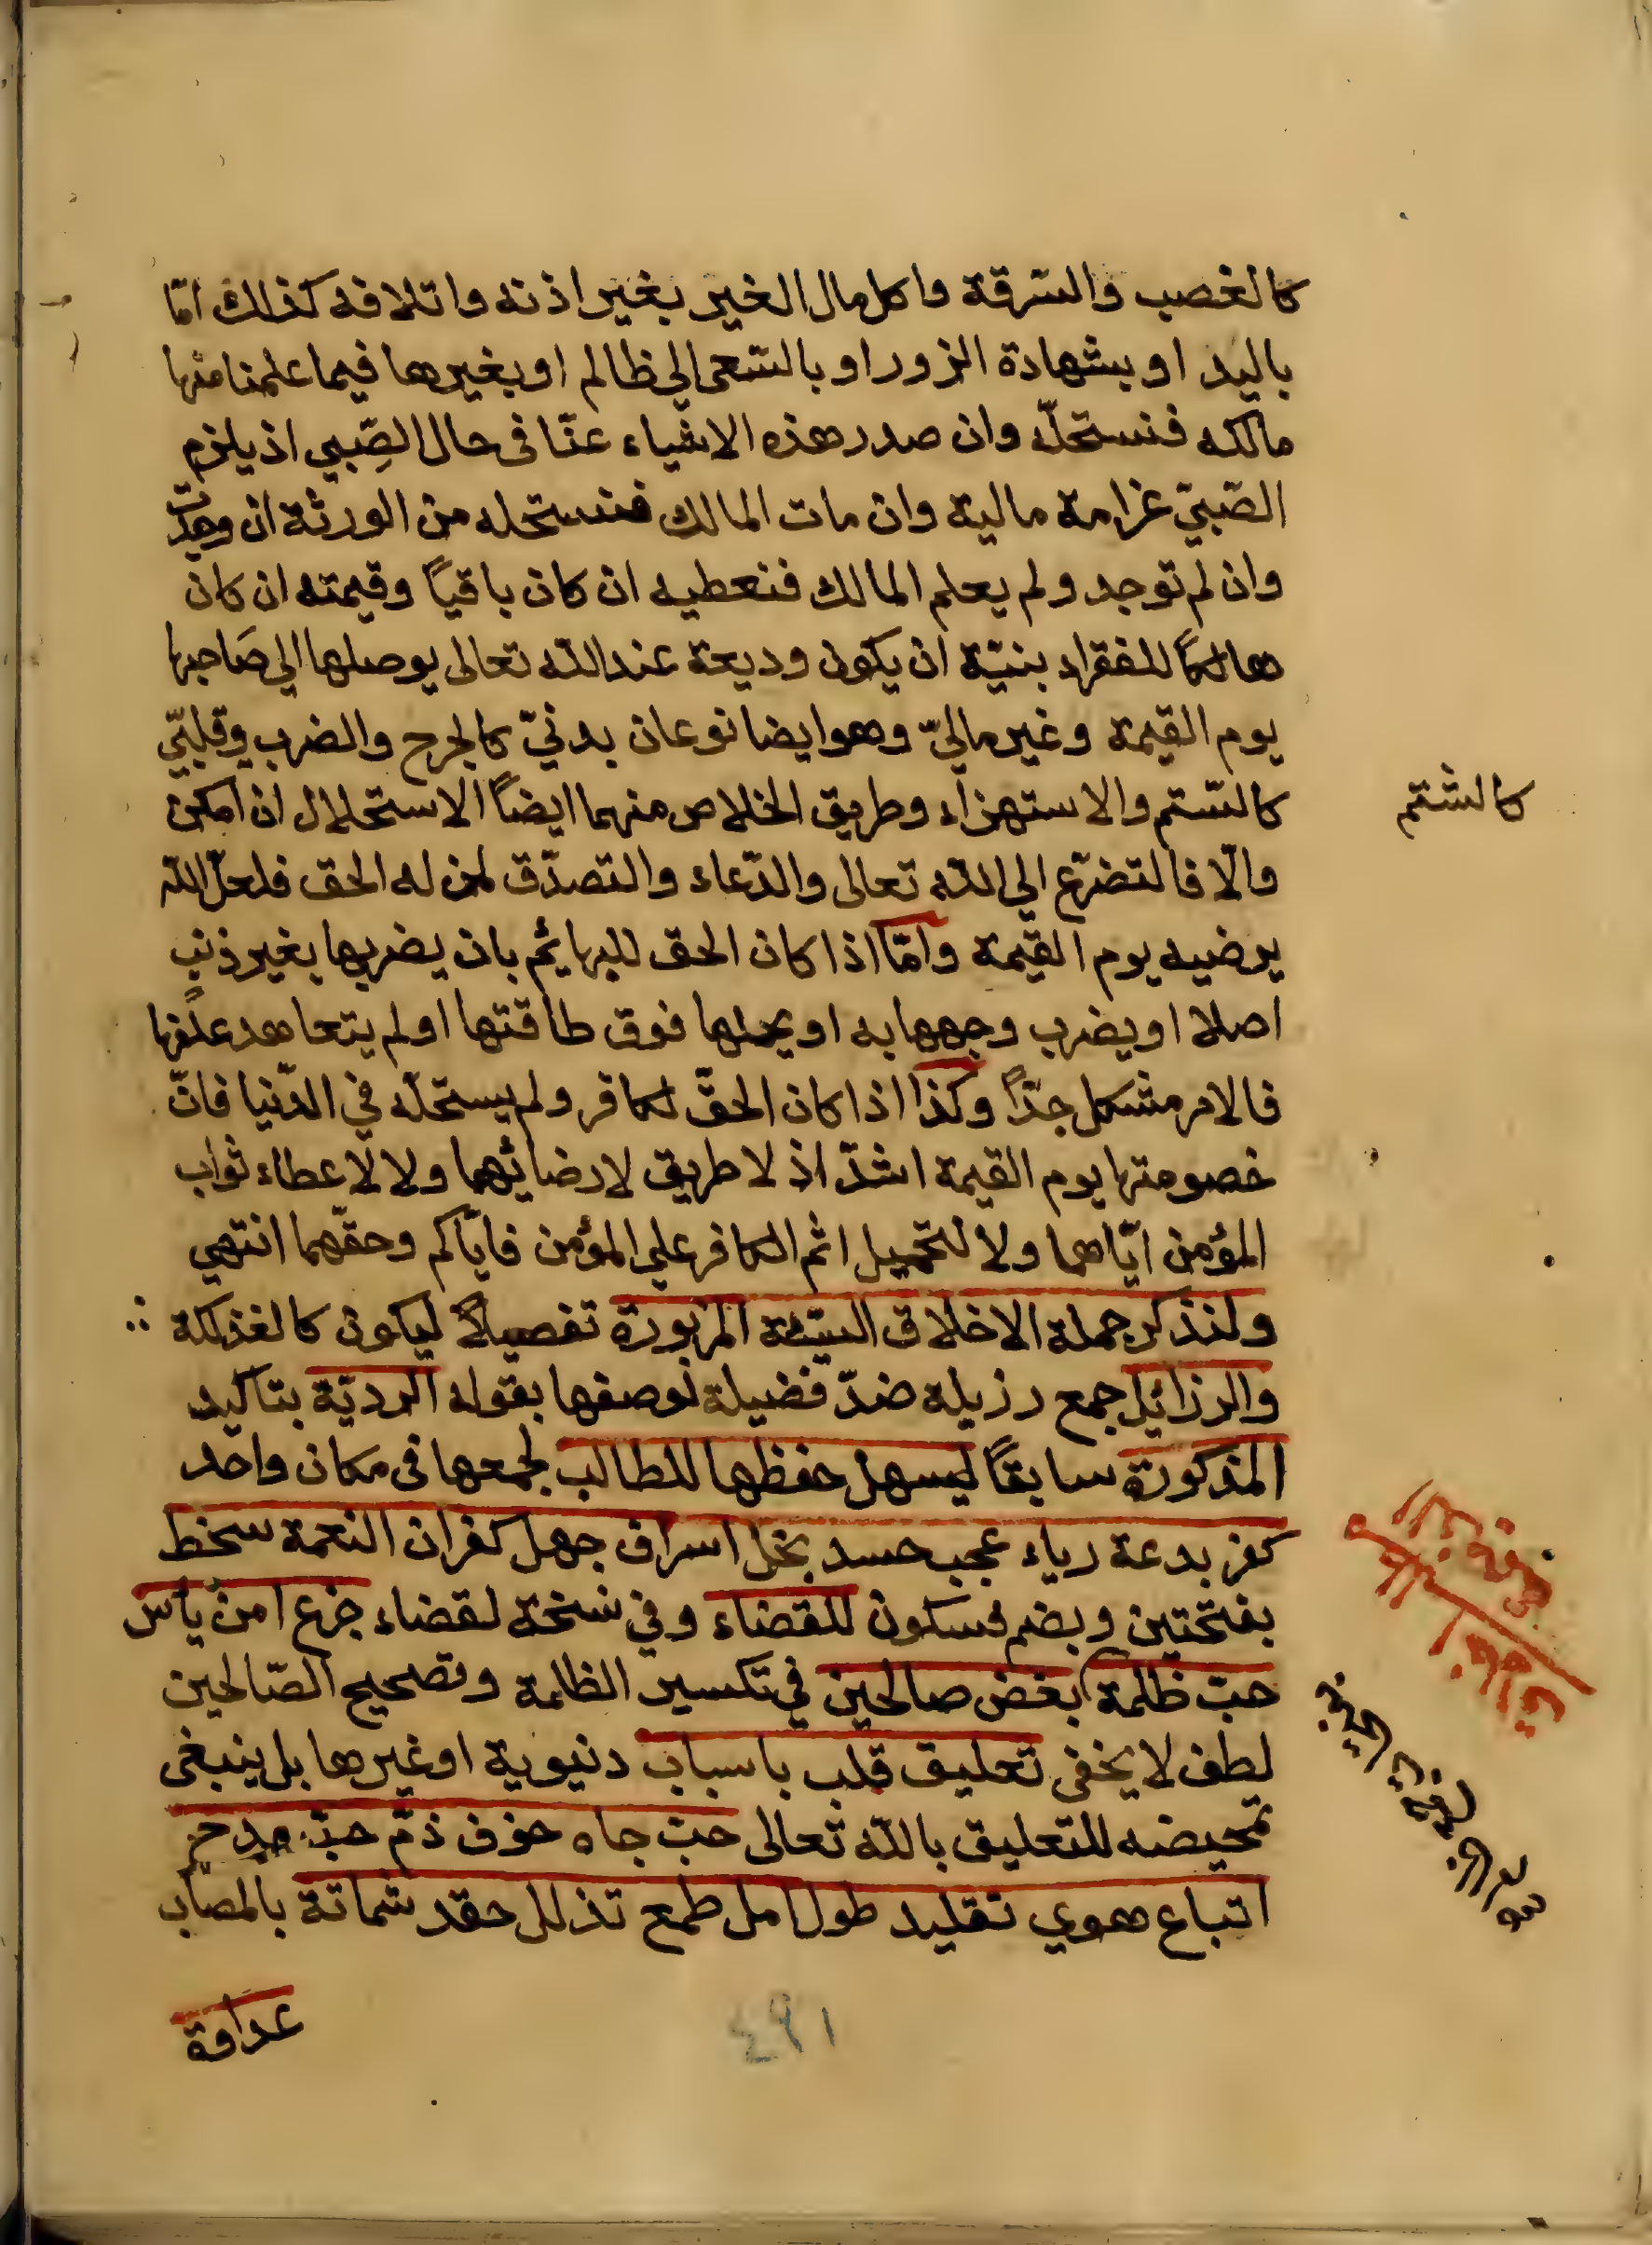 كالغصب والسّرقة واكل مال الغير بغير اذنه واتلافه كذلك امّا
باليد او بشهادة الزور او بالسّعى الي ظالم او بغيرها فيما علمنا منها
مالكه فنستحلّه وان صدر هذه الاشياء عنّا فى حال الصّبي اذ يلزم
الصّبيّ غرامة مالية وان مات المالك فنستحله من الورثة ان وجدت
وان لم توجد ولم يعلم المالك فنعطيه ان كان باقياً وقيمته ان كان
هالكاً للفقراء بنيّة ان يكون وديعة عند اللّه تعالى يوصلها الي صَاحبها
يوم القيمة وغير ماليّ وهو ايضا نوعان بدنيّ كالجرح والضرب وقلبيّ
كالشتم والاستهزاء وطريق الخلاص منهما ايضاً الاستحلال ان امكن
والّا فالتضرّع الي اللّه تعالى والدّعاء والتصدّق لمن له الحق فلعلّ اللّه
يرضيه يوم القيمة وامّا اذا كان الحق للبهائم بان يضربها بغير ذنب
اصلا او يضرب وجهها به او يحملها فوق طاقتها او لم يتعاهد علفها
فالامر مشكل جدّاً وكذا اذا كان الحقّ لكافر ولم يستحلّه في الدّنيا فانّ
خصومتها يوم القيمة اشدّ اذ لا طريق لارضائهما ولا لاعطاء ثواب
المؤمن ايّاهما ولا لتحميل اثم الكافر علي المؤمن فايّاكم وحقّهما انتهي
ولنذكر جملة الاخلاق السّيّئة المزبورة تفصيلاً ليكون كالفذلكة
والرزائل جمع رزيلة ضدّ فضيلة فوصفها بقوله الرديّة بتاكيد
المذكورة سابقاً ليسهل حفظها للطالب لجمعها فى مكان واحد
كفر بدعة رياء عجب حسد بخل اسراف جهل كفران النعمة سخط
بفتحتين وبضم فسكون للقضاء وفي نسخة لقضاء جزع امن يأس
حبّ ظلمة بغض صالحين في تكسير الظلمة وتصحيح الصّالحين
لطف لا يخفى تعليق قلب باسباب دنيوية او غيرها بل ينبغى
تمحيضه للتعليق باللّه تعالى حبّ جاه خوف ذمّ حبّ مدح
اتباع هوي تقليد طول امل طمع تذلل حقد شماتة بالمصاب
عداوة
كالشتم